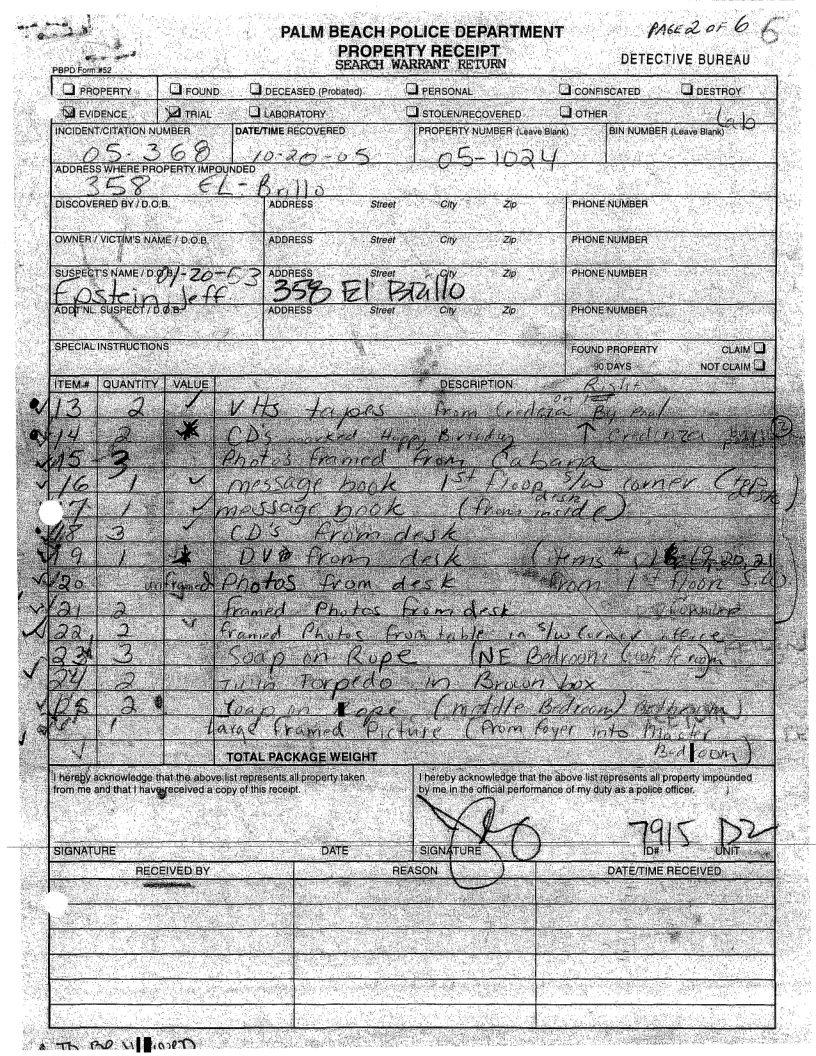 PALM BEACH POLICE DEPARTMENT
PAGE 2 OF 6 6
PROPERTY RECEIPT
SEARCH WARRANT RETURN
DETECTIVE BUREAU
PBPD Form #52
PROPERTY FOUND DECEASED (Probated) PERSONAL CONFISCATED DESTROY
EVIDENCE TRIAL LABORATORY STOLEN/RECOVERED OTHER Lab
INCIDENT/CITATION NUMBER DATE/TIME RECOVERED PROPERTY NUMBER (Leave Blank) BIN NUMBER (Leave Blank)
05-368 10-20-05 05-1024
ADDRESS WHERE PROPERTY IMPOUNDED
358 EL-Brillo
DISCOVERED BY / D.O.B. ADDRESS Street City Zip PHONE NUMBER
OWNER / VICTIM'S NAME / D.O.B. ADDRESS Street City Zip PHONE NUMBER
SUSPECT'S NAME / D.O.B. 01-20-53 ADDRESS Street City Zip PHONE NUMBER
Epstein, Jeff 358 El Brillo
ADDT'NL. SUSPECT / D.O.B. ADDRESS Street City Zip PHONE NUMBER
SPECIAL INSTRUCTIONS FOUND PROPERTY CLAIM
90 DAYS NOT CLAIM
ITEM# QUANTITY VALUE DESCRIPTION Right
13 2 VHS tapes from Credenza By
14 2 CD's marked Happy Birthday ↑ Credinza 2
15 3 Photos framed from Cabana
16 1 message book 1st floor S/W corner (top desk)
17 1 message book (from inside desk)
18 3 CD's from desk
19 1 DVD from desk (items # 19, 20, 21
20 unframed Photos from desk from 1st floor S.W)
21 2 framed Photos from desk
22 2 framed Photos from table in S/W Corner office
23 3 Soap on Rope (NE Bedroom
24 2 Twin Torpedo in Brown box
25 2 Soap on Rope (middle Bedroom) Bathroom)
26 1 Large Framed Picture (From foyer into Master
Bedroom)
TOTAL PACKAGE WEIGHT
I hereby acknowledge that the above list represents all property taken
from me and that I have received a copy of this receipt.
I hereby acknowledge that the above list represents all property impounded
by me in the official performance of my duty as a police officer.
7915 D2
SIGNATURE DATE SIGNATURE ID# UNIT
RECEIVED BY REASON DATE/TIME RECEIVED